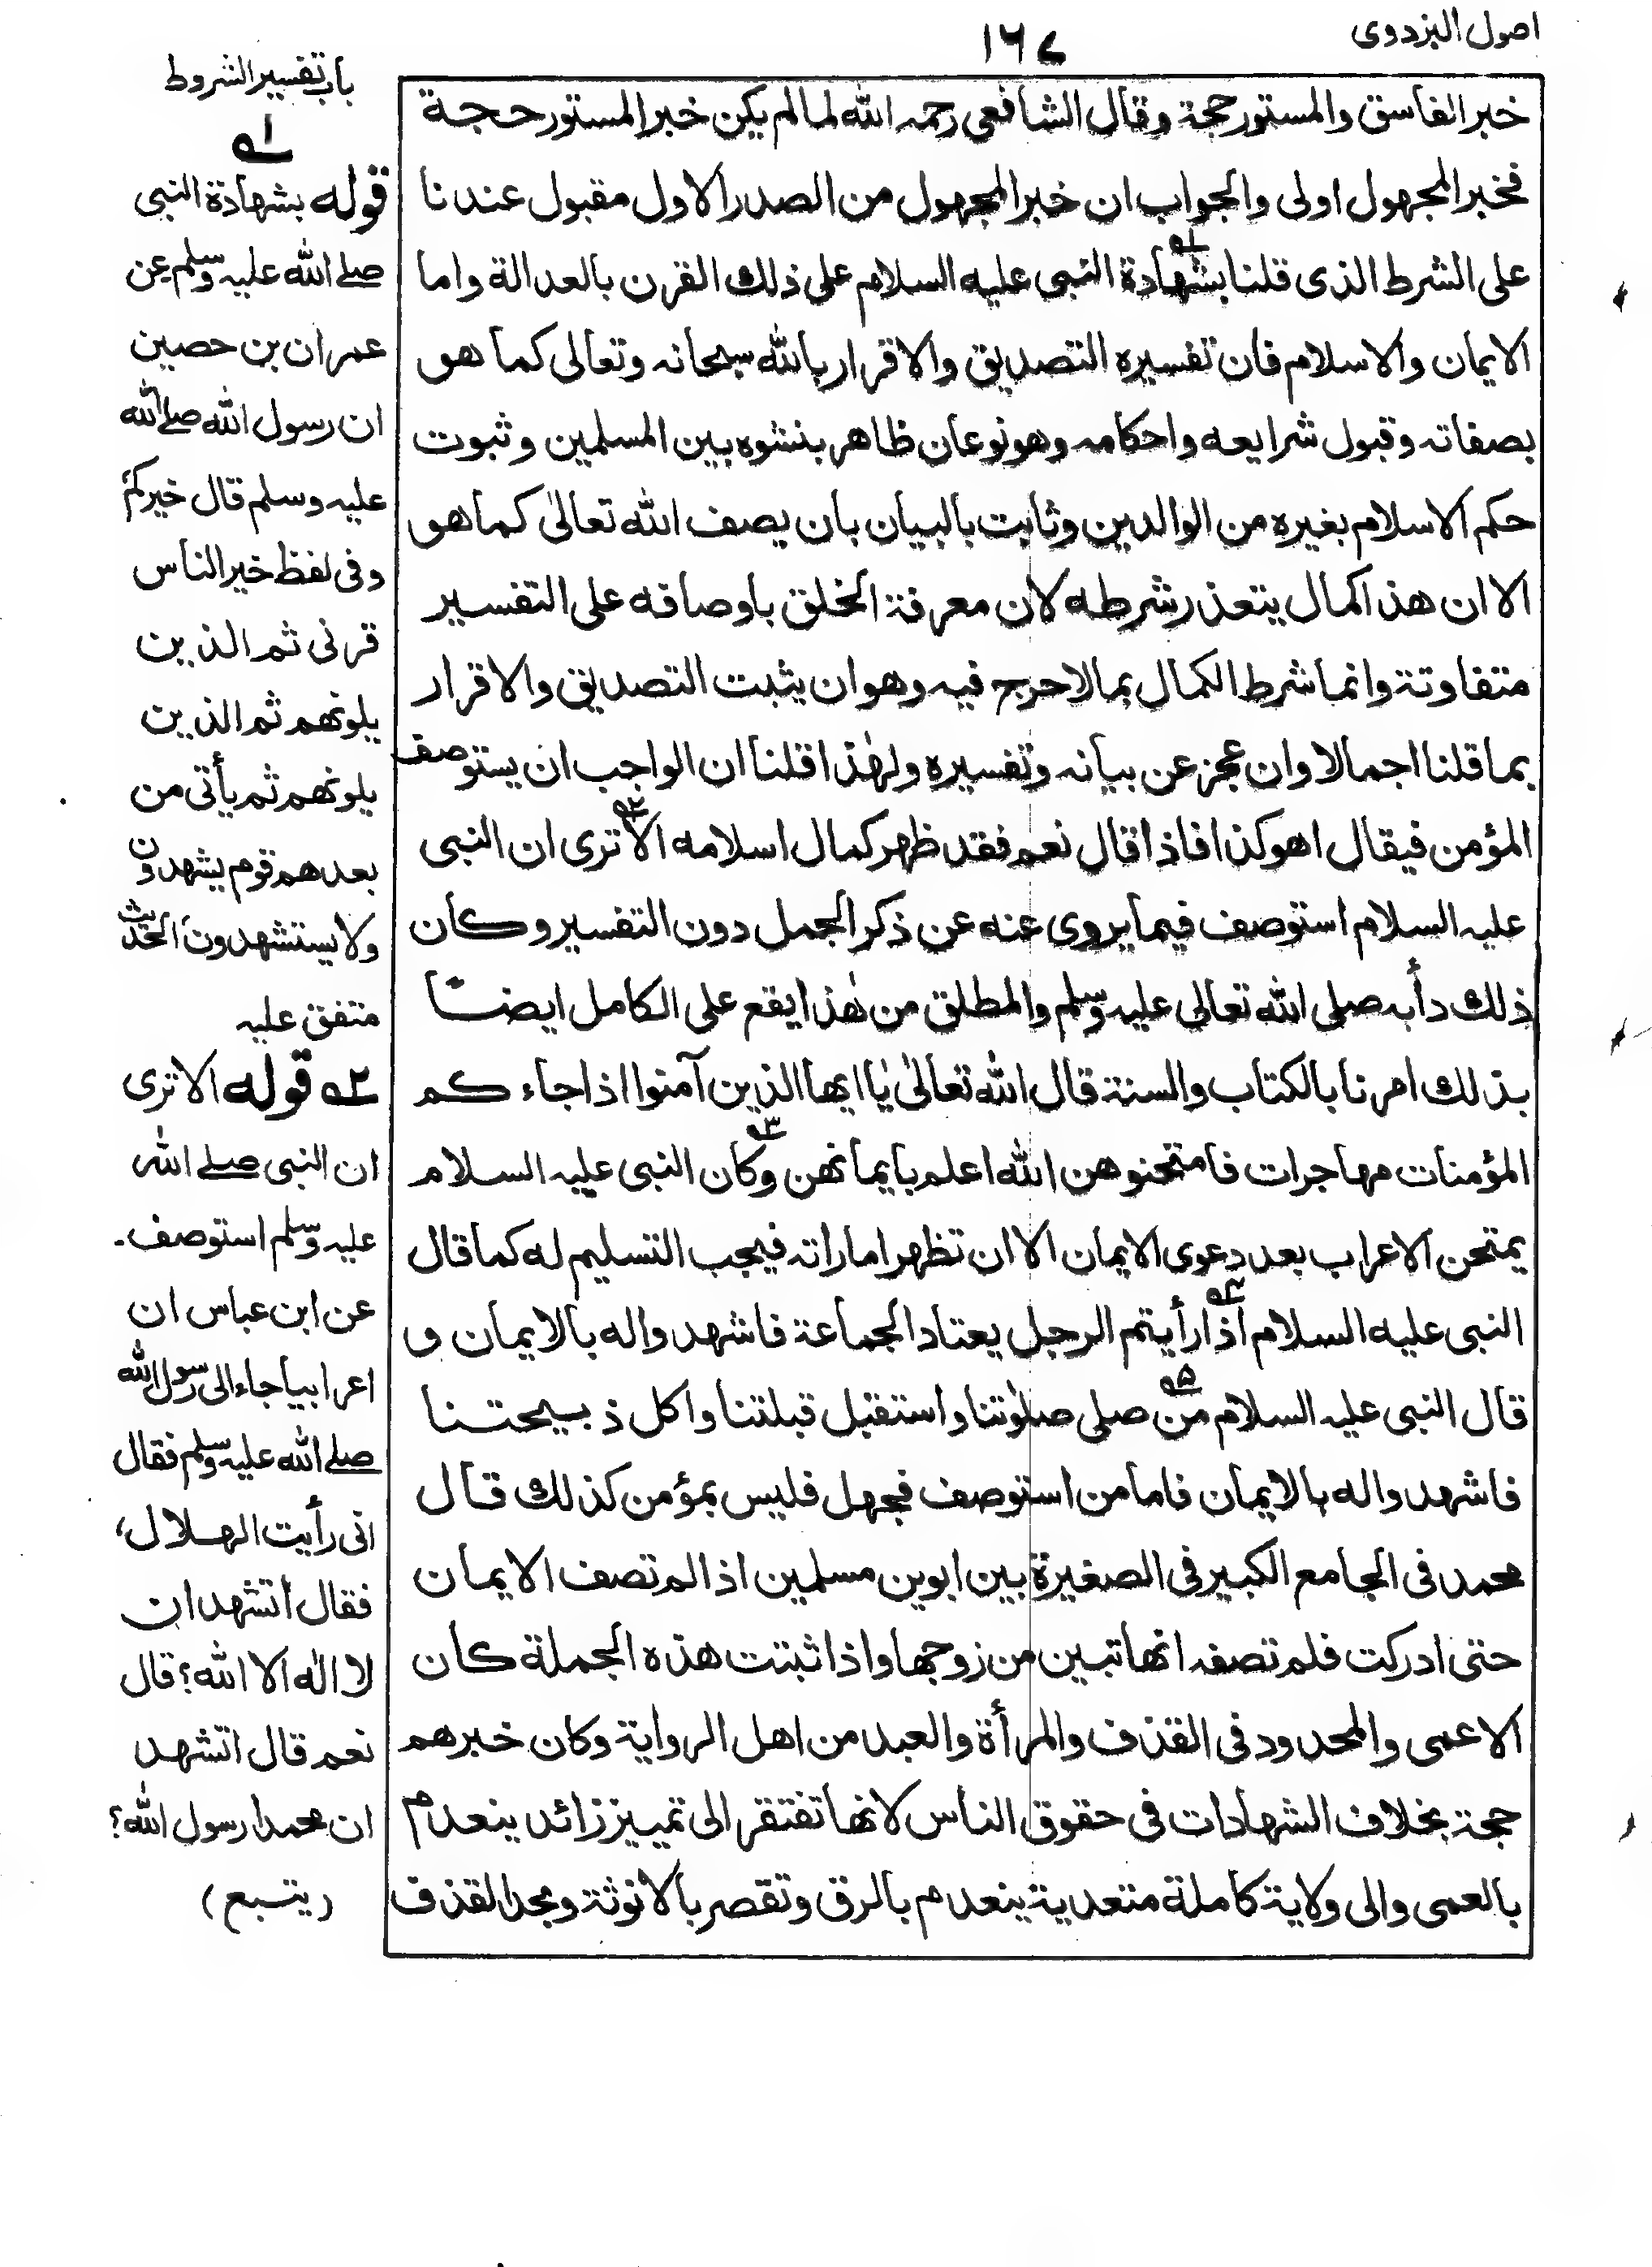 اصول البزدوى
١٦٧
باب تفسير الشروط
خبر الفاسق والمستور حجة وقال الشافعى رحمه الله لما لم يكن خبر المستور حجة
فخبر المجهول اولى والجواب ان خبر المجهول من الصدر الاول مقبول عندنا
على الشرط الذى قلنا بشهادة النبى عليه السلام على ذلك القرن بالعدالة واما
الايمان والاسلام فان تفسيره التصديق والاقرار بالله سبحانه وتعالى كما هو
بصفاته وقبول شرايعه واحكامه وهو نوعان ظاهر بنشوه بين المسلمين وثبوت
حكم الاسلام بغيره من الوالدين وثابت بالبيان بان يصف الله تعالىٰ كما هو
الا ان هذا كمال يتعذر شرطه لان معرفة الخلق باوصافه على التفسير
متفاوتة وانما شرط الكمال بما لا حرج فيه وهو ان يثبت التصديق والاقرار
بما قلنا اجمالا وان عجز عن بيانه وتفسيره ولهٰذا قلنا ان الواجب ان يستوصف
المؤمن فيقال اهو كذا فاذا قال نعم فقد ظهر كمال اسلامه الا ترى ان النبى
عليه السلام استوصف فيما يروى عنه عن ذكر الجمل دون التفسير وكان
ذلك دأبه صلى الله تعالى عليه وسلم والمطلق من هٰذا يقع على الكامل ايضًا
بذلك امرنا بالكتاب والسنة قال الله تعالىٰ يٰا ايها الذين آمنوا اذا جاء كم
المؤمنات مهاجرات فامتحنوهن الله اعلم بايمانهن وكان النبى عليه السلام
يمتحن الاعراب بعد دعوى الايمان الا ان تظهر اماراته فيجب التسليم له كما قال
النبى عليه السلام اذا رأيتم الرجل يعتاد الجماعة فاشهدوا له بالايمان و
قال النبى عليه السلام من صلى صلوٰتنا واستقبل قبلتنا واكل ذبيحتنا
فاشهدوا له بالايمان فاما من استوصف فجهل فليس بمؤمن كذلك قال
محمد فى الجامع الكبير فى الصغيرة بين ابوين مسلمين اذا لم تصف الايمان
حتى ادركت فلم تصفه انها تبين من زوجها واذا ثبتت هذه الجملة كان
الاعمى والمحدود فى القذف والمرأة والعبد من اهل الرواية وكان خبرهم
حجة بخلاف الشهادات فى حقوق الناس لانها تفتقر الى تمييز زائد ينعدم
بالعمى والى ولاية كاملة متعدية ينعدم بالرق وتقصر بالانوثة وبحد القذف
١ه
قوله بشهادة النبى
صلے الله عليه وسلم عن
عمران بن حصين
ان رسول الله صلے الله
عليه وسلم قال خيركم
وفى لفظ خير الناس
قرنى ثم الذين
يلونهم ثم الذين
يلونهم ثم يأتى من
بعدهم قوم يشهدون
ولا يستشهدون الحديث
متفق عليه
٢ه قوله الا ترى
ان النبى صلے الله
عليه وسلم استوصف۔
عن ابن عباس ان
اعرابيا جاء الى رسول الله
صلے الله عليه وسلم فقال
انى رأيت الهلال،
فقال أتشهد ان
لا اله الا الله؟ قال
نعم قال اتشهد
ان محمدا رسول الله؟
(يتبع)